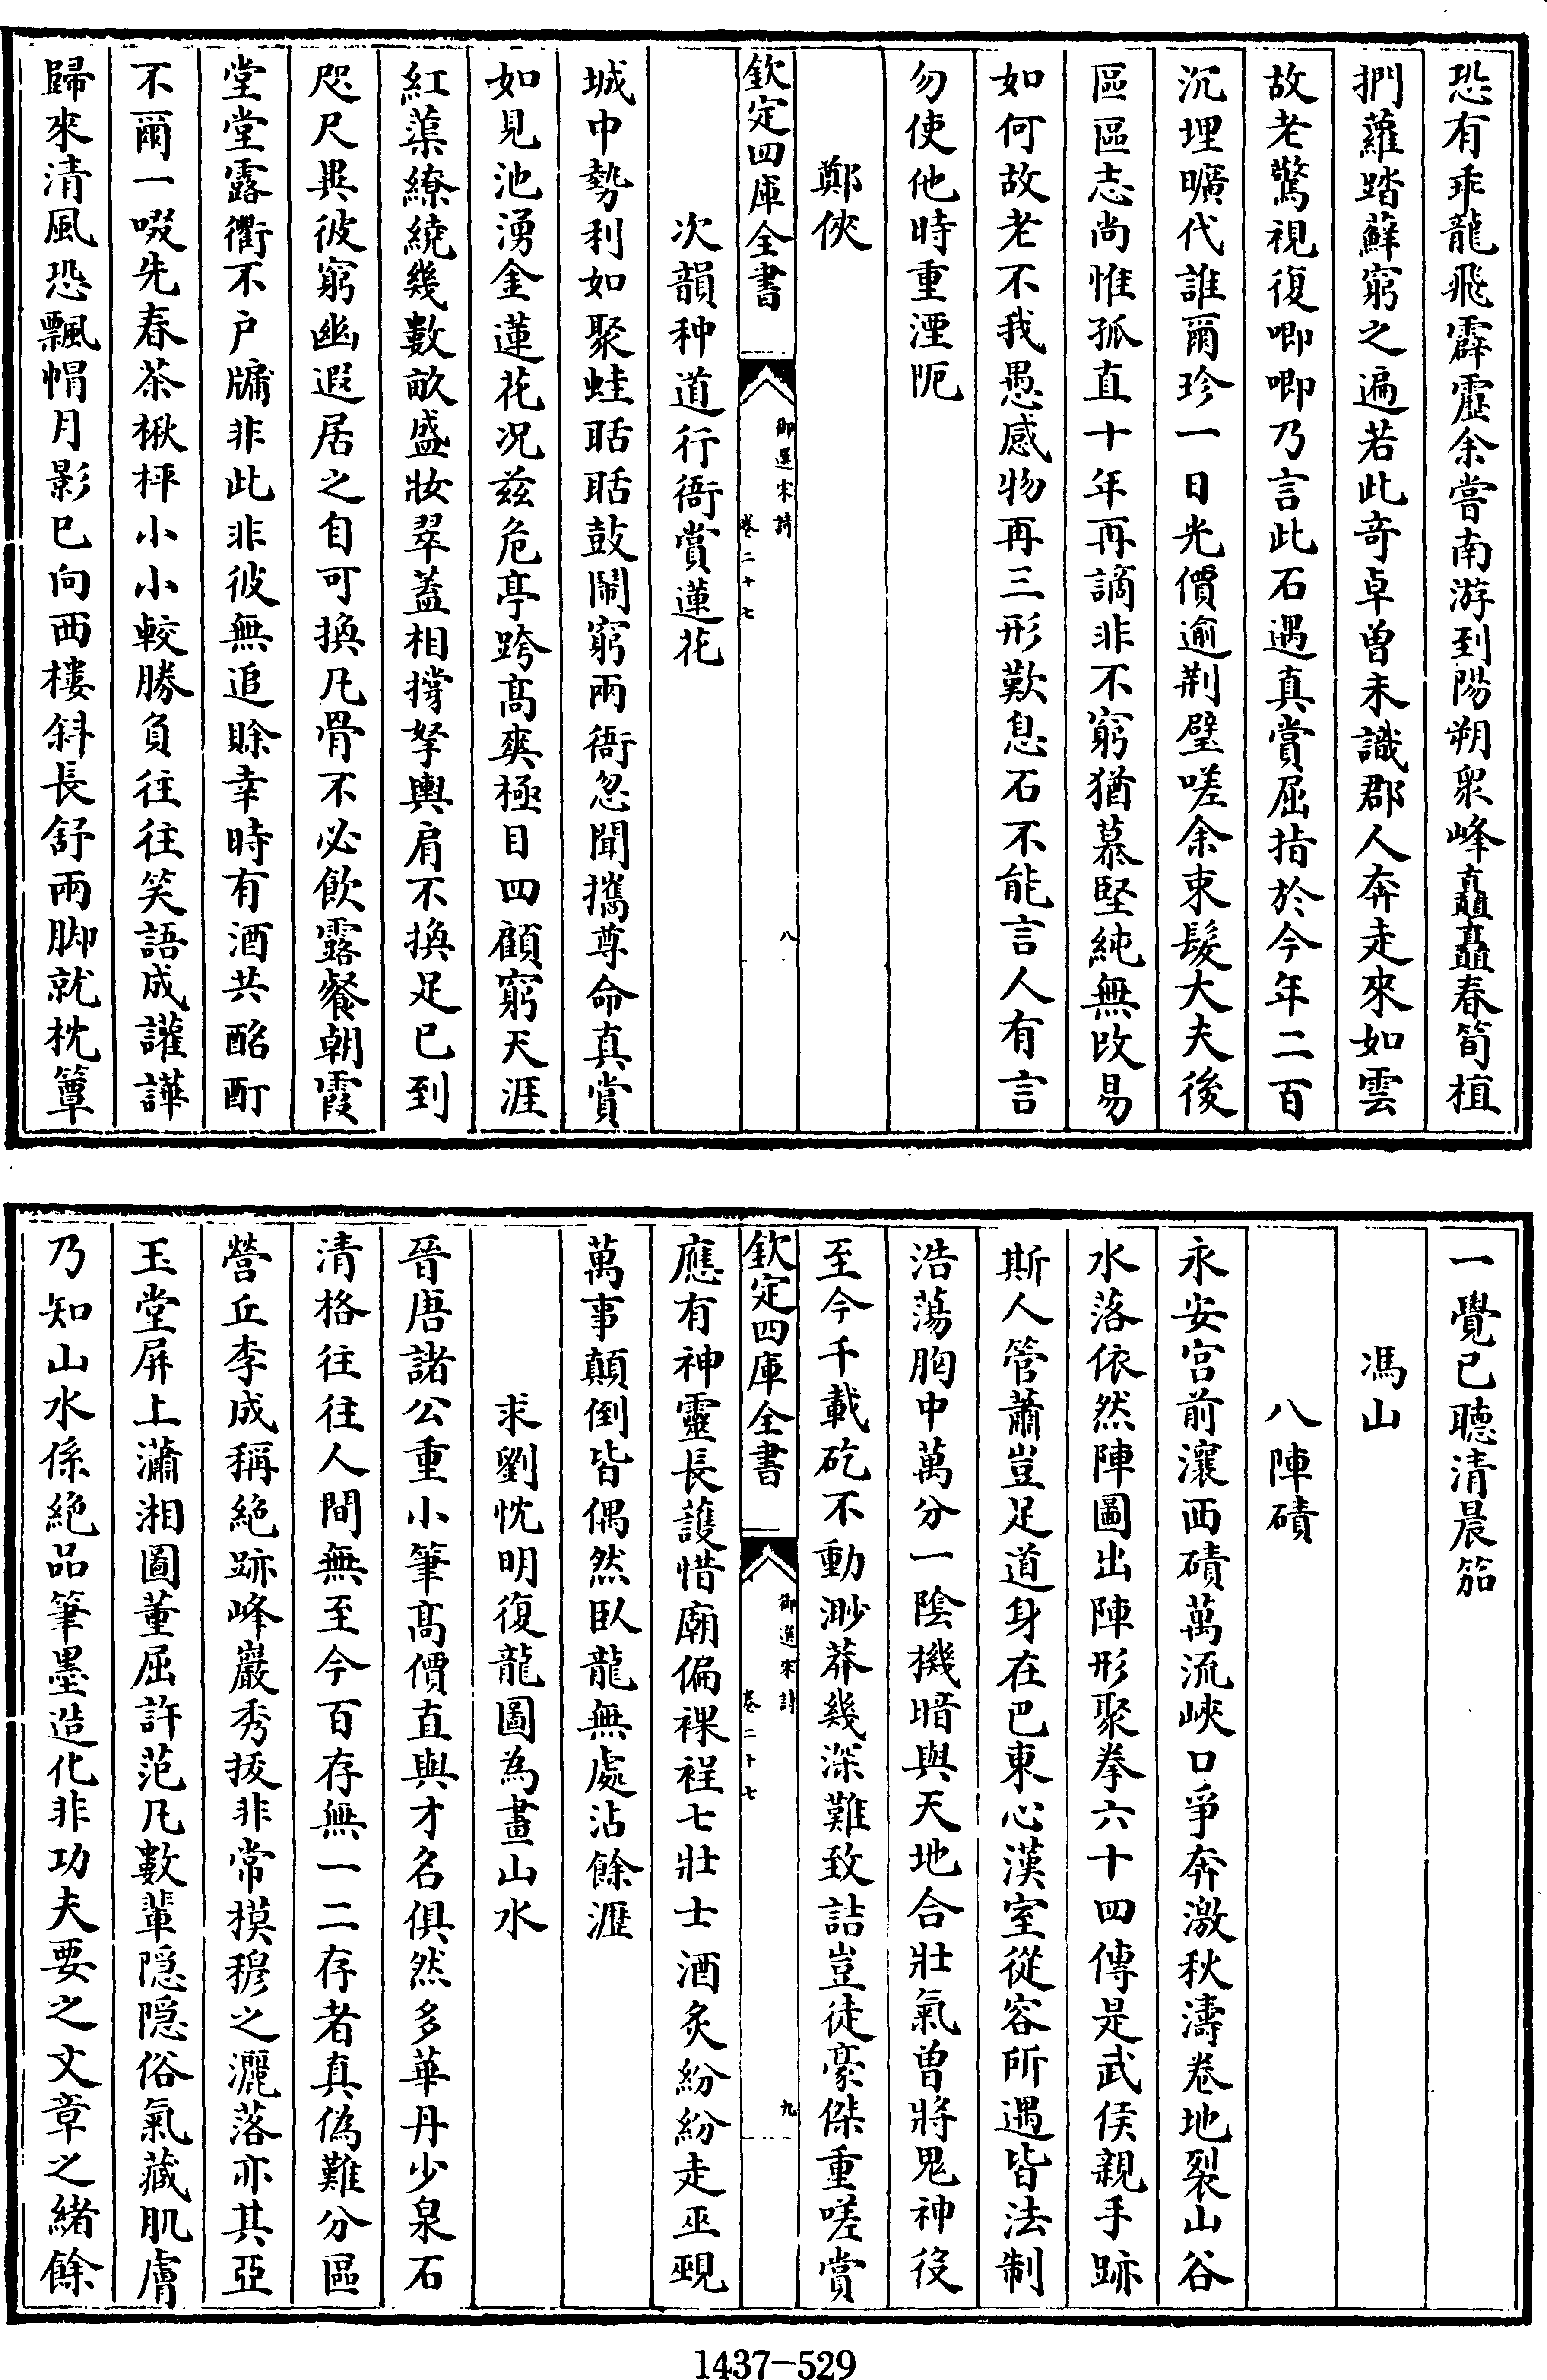 恐有乖龍飛霹靂余嘗南游到陽朔衆峰矗矗春筍植
捫蘿踏蘚窮之遍若此奇卓曽未識郡人奔走來如雲
故老驚視復唧唧乃言此石遇真賞屈指於今年二百
沉埋曠代誰爾珍一日光價逾荆璧嗟余束髮大夫後
區區志尚惟孤直十年再謫非不窮猶慕堅純無改易
如何故老不我愚感物再三形歎息石不能言人有言
勿使他時重湮阨
鄭俠
欽定四庫全書
御選宋詩
卷二十七
八
次韻种道行衙賞蓮花
城中勢利如聚蛙聒聒鼓鬧窮兩衙忽聞攜尊命真賞
如見池湧金蓮花况兹危亭跨髙爽極目四顧窮天涯
紅蕖繚繞幾數畝盛妝翠蓋相撐拏輿肩不換足已到
咫尺異彼窮幽遐居之自可換凡骨不必飲露餐朝霞
堂堂露衢不户牖非此非彼無追賒幸時有酒共酩酊
不爾一啜先春茶楸枰小小較勝負往往笑語成讙譁
歸來清風恐飄帽月影已向西樓斜長舒兩脚就枕簟
一覺已聽清晨笳
馮山
八陣磧
永安宫前瀼西磧萬流峽口爭奔激秋濤卷地裂山谷
水落依然陣圖出陣形聚拳六十四傳是武侯親手跡
斯人管蕭豈足道身在巴東心漢室從容所遇皆法制
浩蕩胸中萬分一陰機暗與天地合壯氣曽將鬼神役
至今千載矻不動渺莽幾深難致詰豈徒豪傑重嗟賞
欽定四庫全書
御選宋詩
卷二十七
九
應有神靈長䕶惜廟偏裸裎七壯士酒炙紛紛走巫覡
萬事顛倒皆偶然臥龍無處沾餘瀝
求劉忱明復龍圖為畫山水
晉唐諸公重小筆髙價直與才名俱然多華丹少泉石
清格往往人間無至今百存無一二存者真偽難分區
營丘李成稱絶跡峰巖秀拔非常模穆之灑落亦其亞
玉堂屏上瀟湘圖董屈許范凡數輩隠隠俗氣藏肌膚
乃知山水係絶品筆墨造化非功夫要之文章之緒餘
1437—529